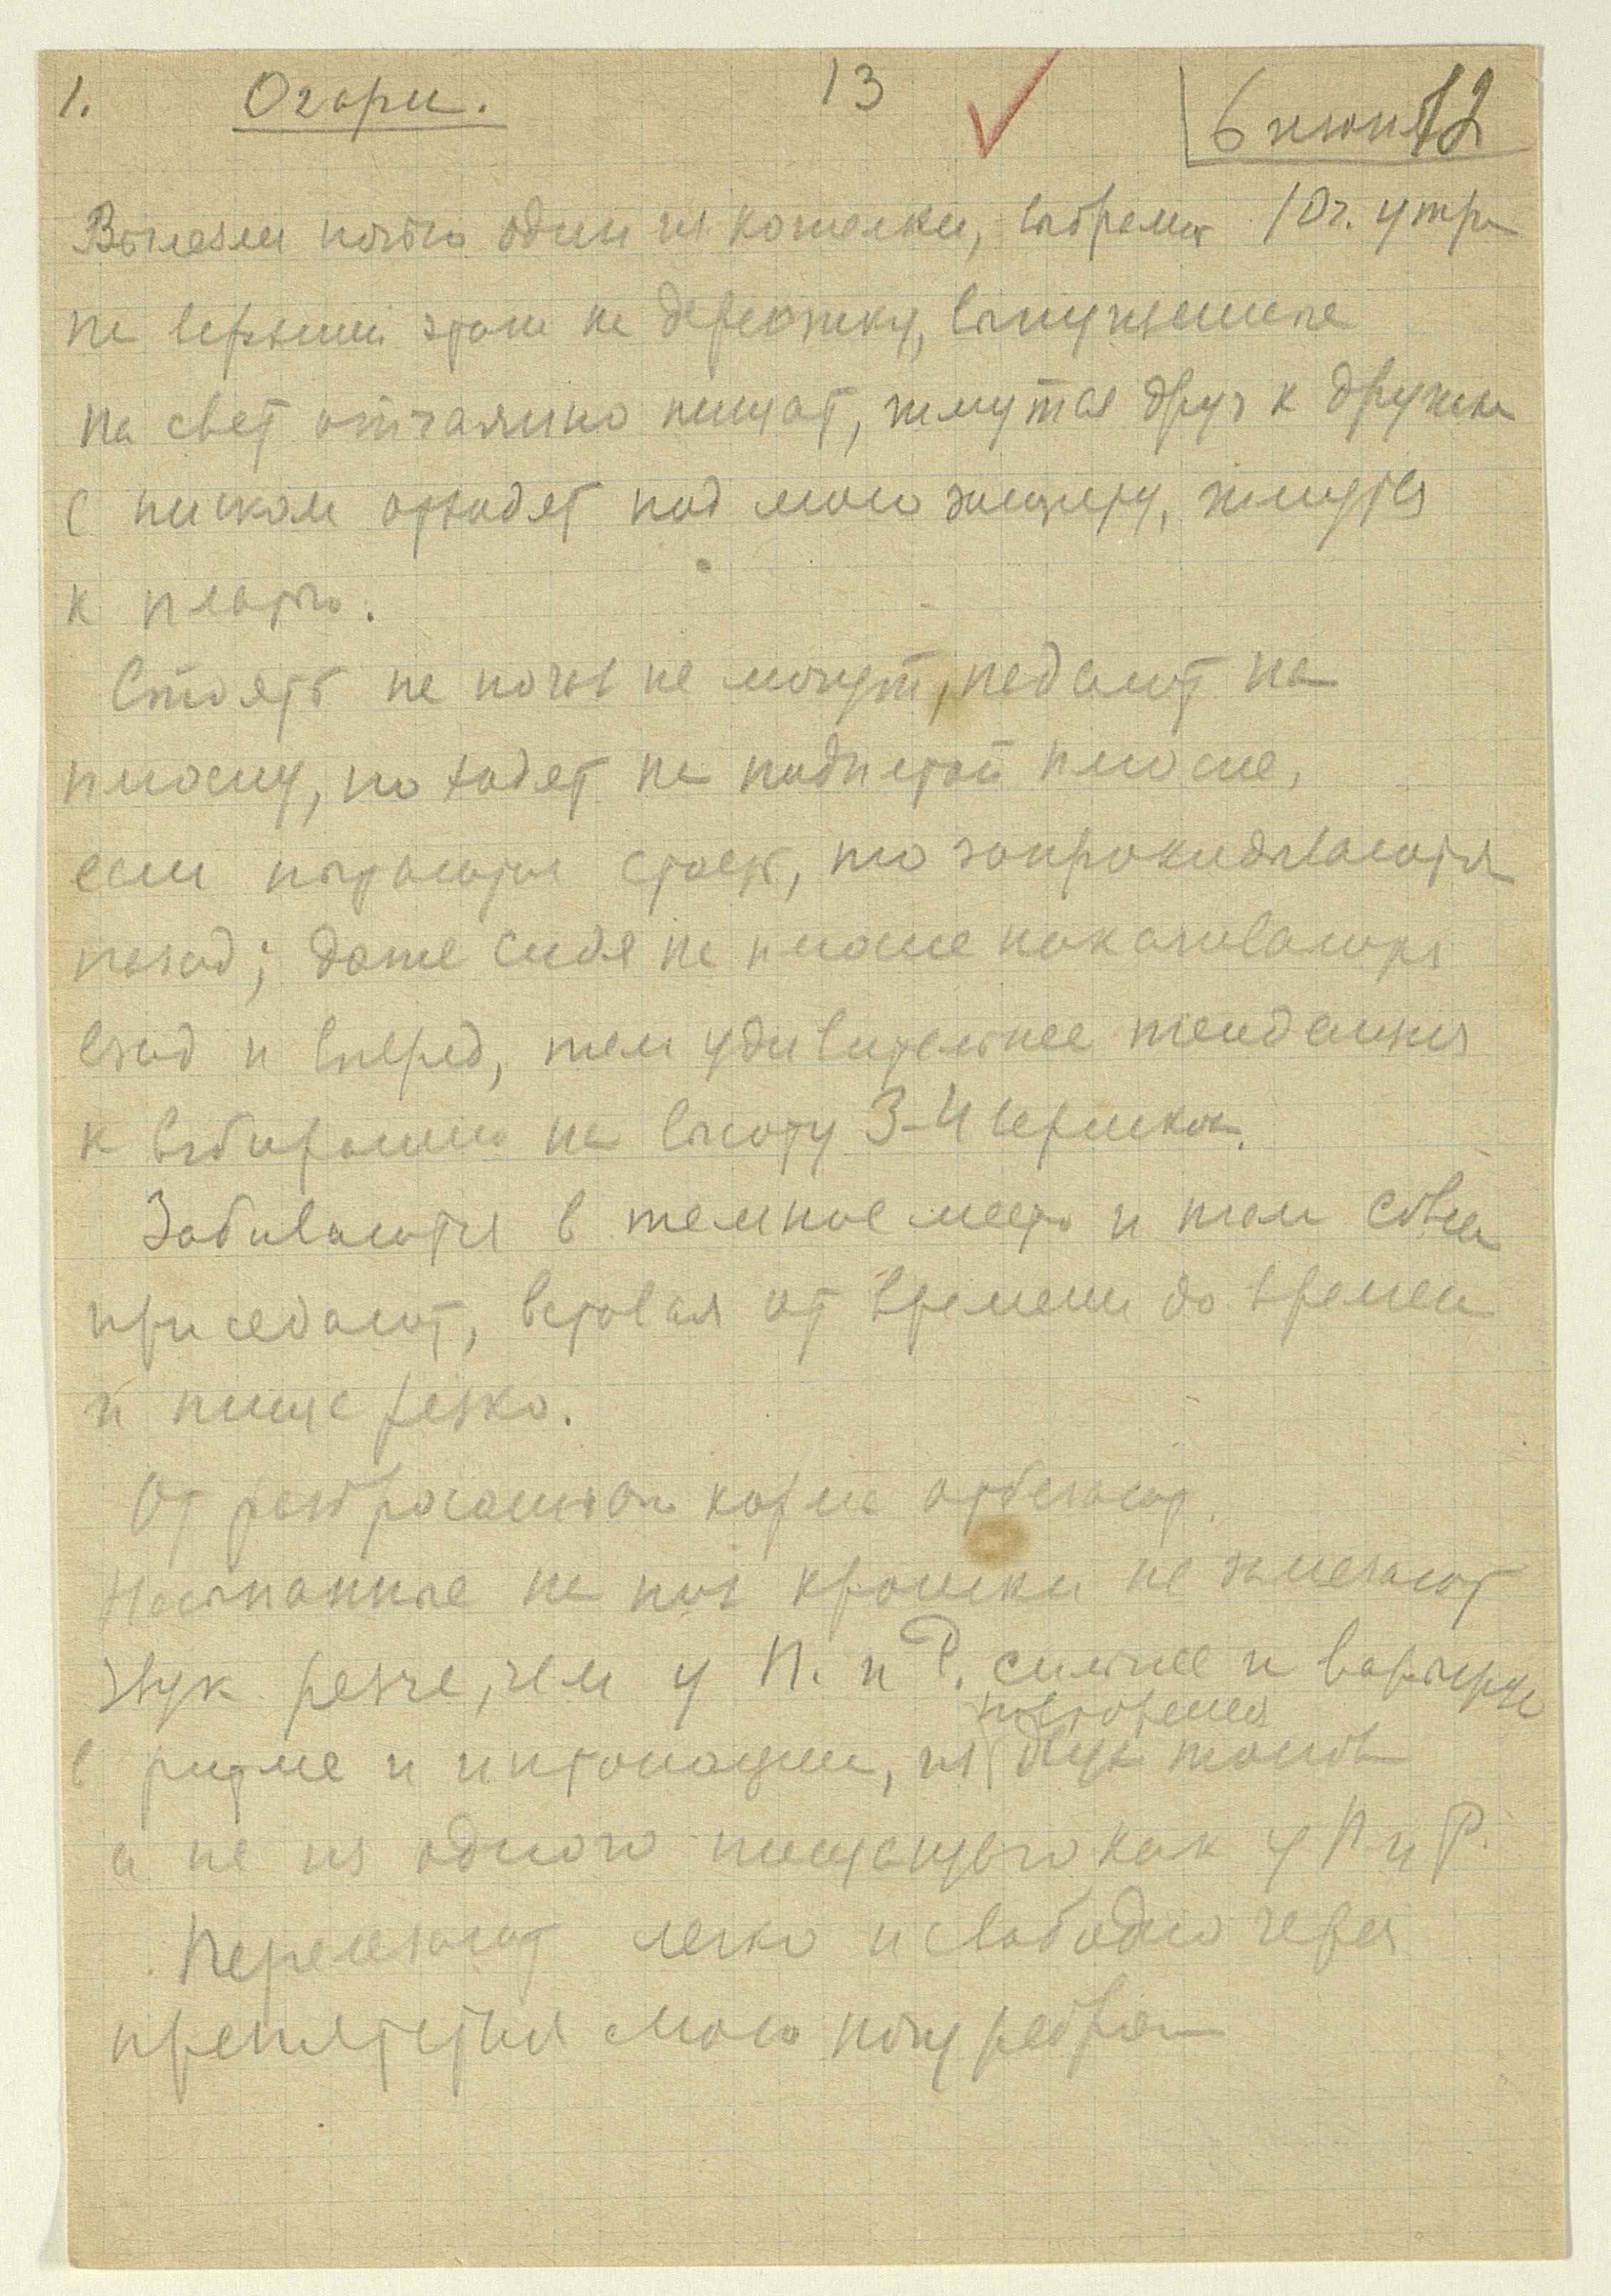 1. Огари. 13 6 июня 12
Вылезли ночью одни из кошелки, взобрались 10 ч. утра
на верхний этаж на дерюжку, выпущенные
на свет отчаянно пищат, жмутся друг к дружке
с писком отходят под мою защиту, жмутся
к платью.
Стоять на ногах не могут, падают на
плюсну, но ходят на поднятой плюсне,
если пытаются стоять, то запрокидываются
назад; даже сидя на плюсне покачиваются
взад и вперед, тем удивительнее тенденция
к взбиранию на высоту 3-4 вершков.
Забиваются в темное место и там совсем
приседают, вставая от времени до времени
и пища резко.
От разбросанного корма отбегают.
Насыпанные на пол крошки не замечают
Звук резче, чем у П. и Р. сильнее и варьируя
повторения
в ритме и интонации, из двух тонов
а не из одного пищащего как у П и Р.
Перелезают легко и свободно через
препятствия мою ногу ребром